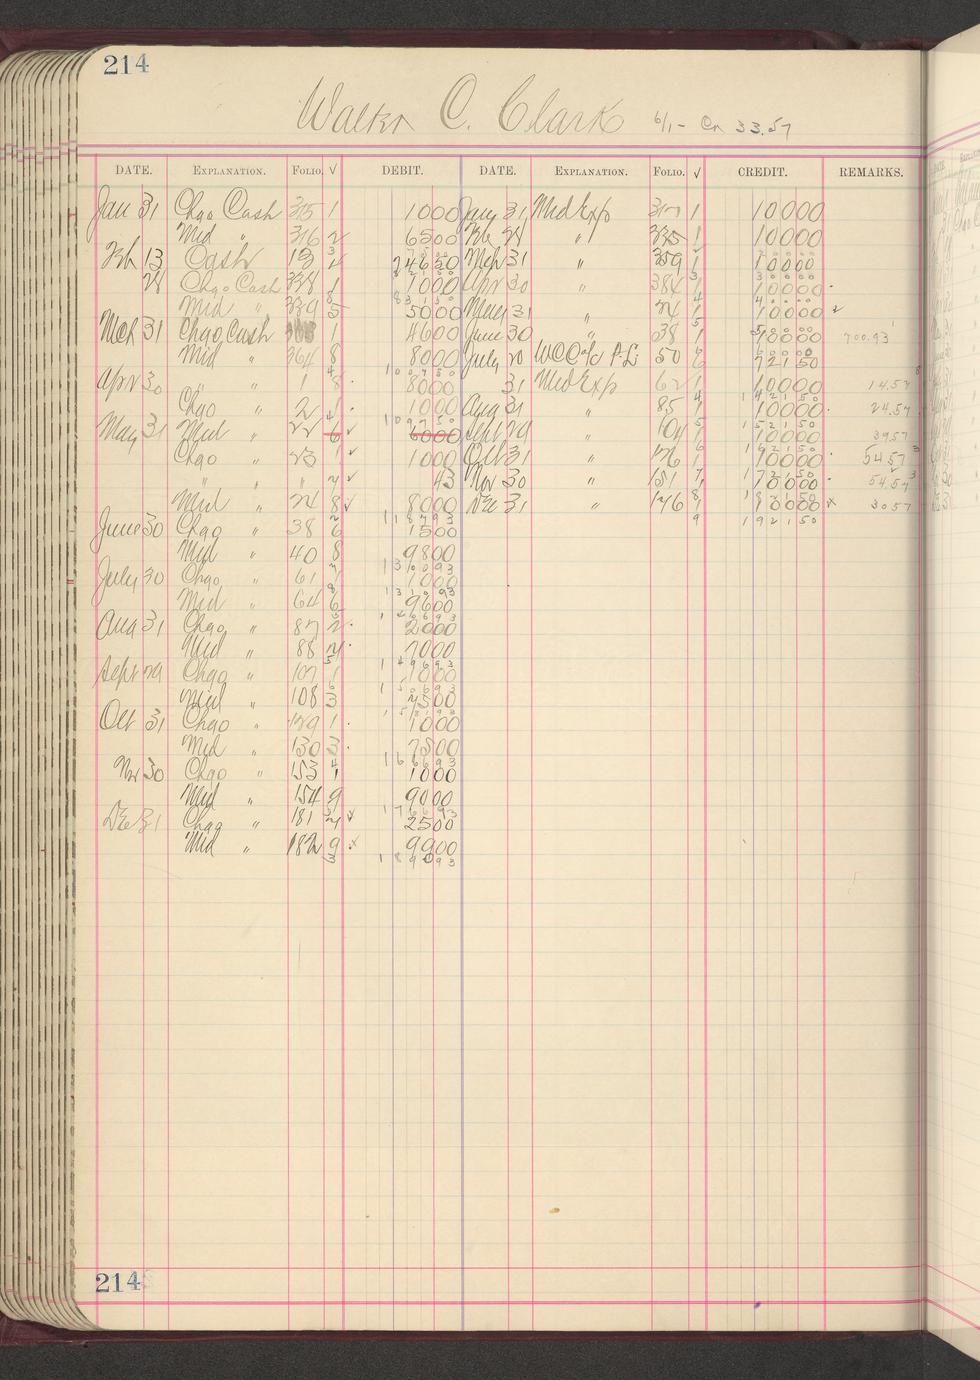 214
Walter C. Clark 6/1- Cr 33.57
DATE. EXPLANATION. FOLIO. √ DEBIT. DATE. EXPLANATION. FOLIO. √ CREDIT. REMARKS.
Jan 31 Chgo Cash 315 1 1000 Jany 31 Mid Exp 317 1 10000
Mid " 316 2 6500 Feb 28 " 335 1 10000
Feb 13 Cash 13 24650 Mch 31 " 359 1 10000
28 Chgo Cash 338 1 1000 Apr 30 " 384 1 10000
Mid " 339 5 5000 May 31 " 24 1 10000
Mch 31 Chgo Cash 1 4600 June 30 " 38 1 10000 700.93
Mid " 364 8 8000 July 20 WCC a/c P.L. 50 6 72150
Apr 30 " " 1 8 8000 31 Mid Exp 62 1 10000 14.57
Chgo " 2 1 1000 Aug 31 " 85 1 10000 24.57
May 31 Mid " 22 6 6000 Sept 29 " 104 1 10000 39.57
Chgo " 23 1 1000 Oct 31 " 126 1 10000 54.57
" " " 2 43 Nov 30 " 151 1 10000 54.57
Mid " 24 8 8000 Dec 31 " 176 1 10000 30.57
June 30 Chgo " 38 6 1500 192150
Mid " 40 8 9800
July 30 Chgo " 61 1 1000
Mid " 64 6 9600
Aug 31 Chgo " 87 2 2000
Mid " 88 2 7000
Sept 29 Chgo " 107 1 1000
Mid " 108 3 7500
Oct 31 Chgo " 129 1 1000
Mid " 130 3 7500
Nov 30 Chgo " 153 1 1000
Mid " 154 9 9000
Dec 31 Chgo " 181 2 2500
Mid " 182 9 9900
189093
214